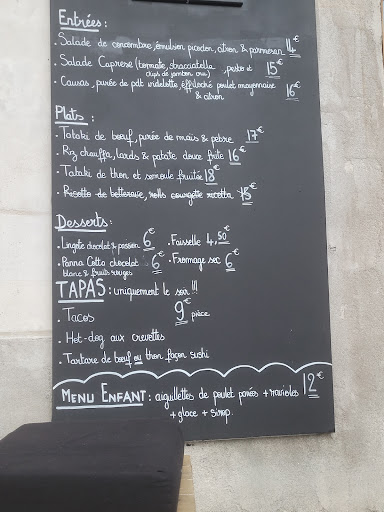 Entrées :
. Salade de concombre, émulsion picodon, citron & parmesan 14€
. Salade Caprese (tomate, stracciatella, pesto et 15€
chips de jambon cru)
. Causas, purée de pdt vitelotte, effiloché poulet mayonnaise 16€
& citron
Plats :
. Tataki de bœuf, purée de maïs & pebre 17€
. Riz chauffa, lards & patate douce frite 16€
. Tataki de thon et semoule fruitée 18€
. Risotto de betterave, rolls courgette ricotta 15€
Desserts :
. Lingote chocolat & passion 6€ . Faisselle 4,50€
. Panna Cotta chocolat 6€ . Fromage sec 6€
blanc & fruits rouges
TAPAS : uniquement le soir !!!
. Tacos 9€ pièce
. Hot-dog aux crevettes
. Tartare de bœuf ou thon façon sushi
MENU ENFANT : aiguillettes de poulet panés + ravioles 12€
+ glace + sirop.